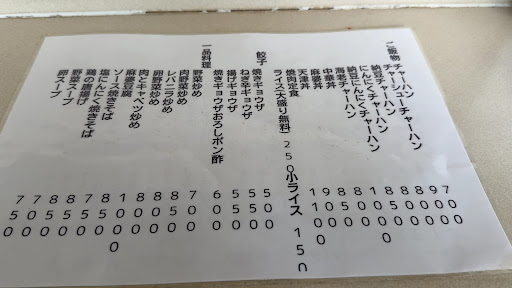 ご飯物
チャーハン 700
チャーシューチャーハン 900
納豆チャーハン
にんにくチャーハン
納豆にんにくチャーハン
海老チャーハン
中華丼
麻婆丼
天津丼
焼肉定食
ライス(大盛り無料)250小ライス 150
餃子
焼きギョウザ 500
ねぎ辛ギョウザ 550
揚げギョウザ 550
焼きギョウザおろしポン酢 600
一品料理
野菜炒め 700
肉野菜炒め 800
レバニラ炒め 850
卵野菜炒め
肉とキャベツ炒め
麻婆豆腐
ソース焼きそば
塩にんにく焼きそば
鶏の唐揚げ
野菜スープ
卵スープ